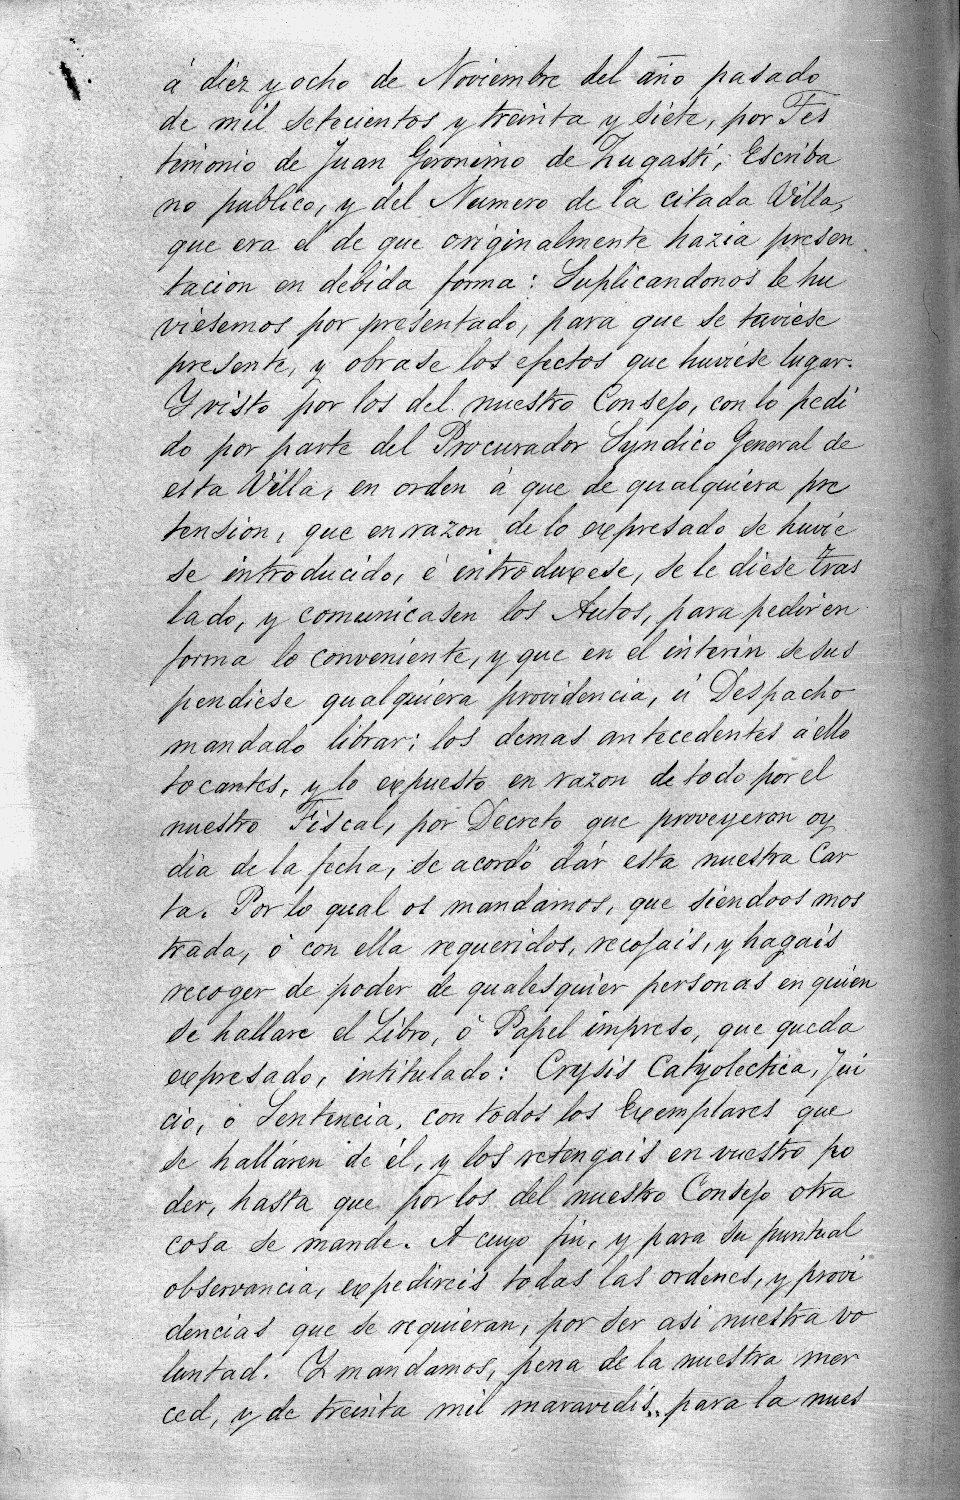 á diez y ocho de Noviembre del año pasado
de mil setecientos y treinta y siete, por Tes
timonio de Juan Geronimo de Zugasti, Escriba
no publico, y del Numero de la citada Villa,
que era el de que originalmente hazia presen
tacion en debida forma: Suplicandonos le hu
viesemos por presentado, para que se tuviese
presente, y obrase los efectos que huviese lugar.
Y visto por los del nuestro Consejo, con lo pedi
do por parte del Procurador Syndico General de
esta Villa, en orden á que de qualquiera pre
tension, que en razon de lo expresado se huvie
se introducido, é introduxese, se le diese tras
lado, y comunicasen los Autos, para pedir en
forma lo conveniente, y que en el interin se sus
pendiese qualquiera providencia, ú Despacho
mandado librar; los demas antecedentes á ello
tocantes, y lo expuesto en razon de todo por el
nuestro Fiscal, por Decreto que proveyeron oy
dia de la fecha, se acordó dár esta nuestra Car
ta. Por lo qual os mandamos, que siendoos mos
trada, ó con ella requeridos, recojais, y hagais
recoger de poder de qualesquier personas en quien
se hallare el Libro, ó Papel impreso, que queda
expresado, intitulado: Crysis Catyolectica, Jui
cio, ó Sentencia, con todos los Exemplares que
se halláren de él, y los retengais en vuestro po
der, hasta que por los del nuestro Consejo otra
cosa se mande. A cuyo fin, y para su puntual
observancia, expedireis todas las ordenes, y provi
dencias que se requieran, por ser asi nuestra vo
luntad. Y mandamos, pena de la nuestra mer
ced, y de treinta mil maravedis, para la nues